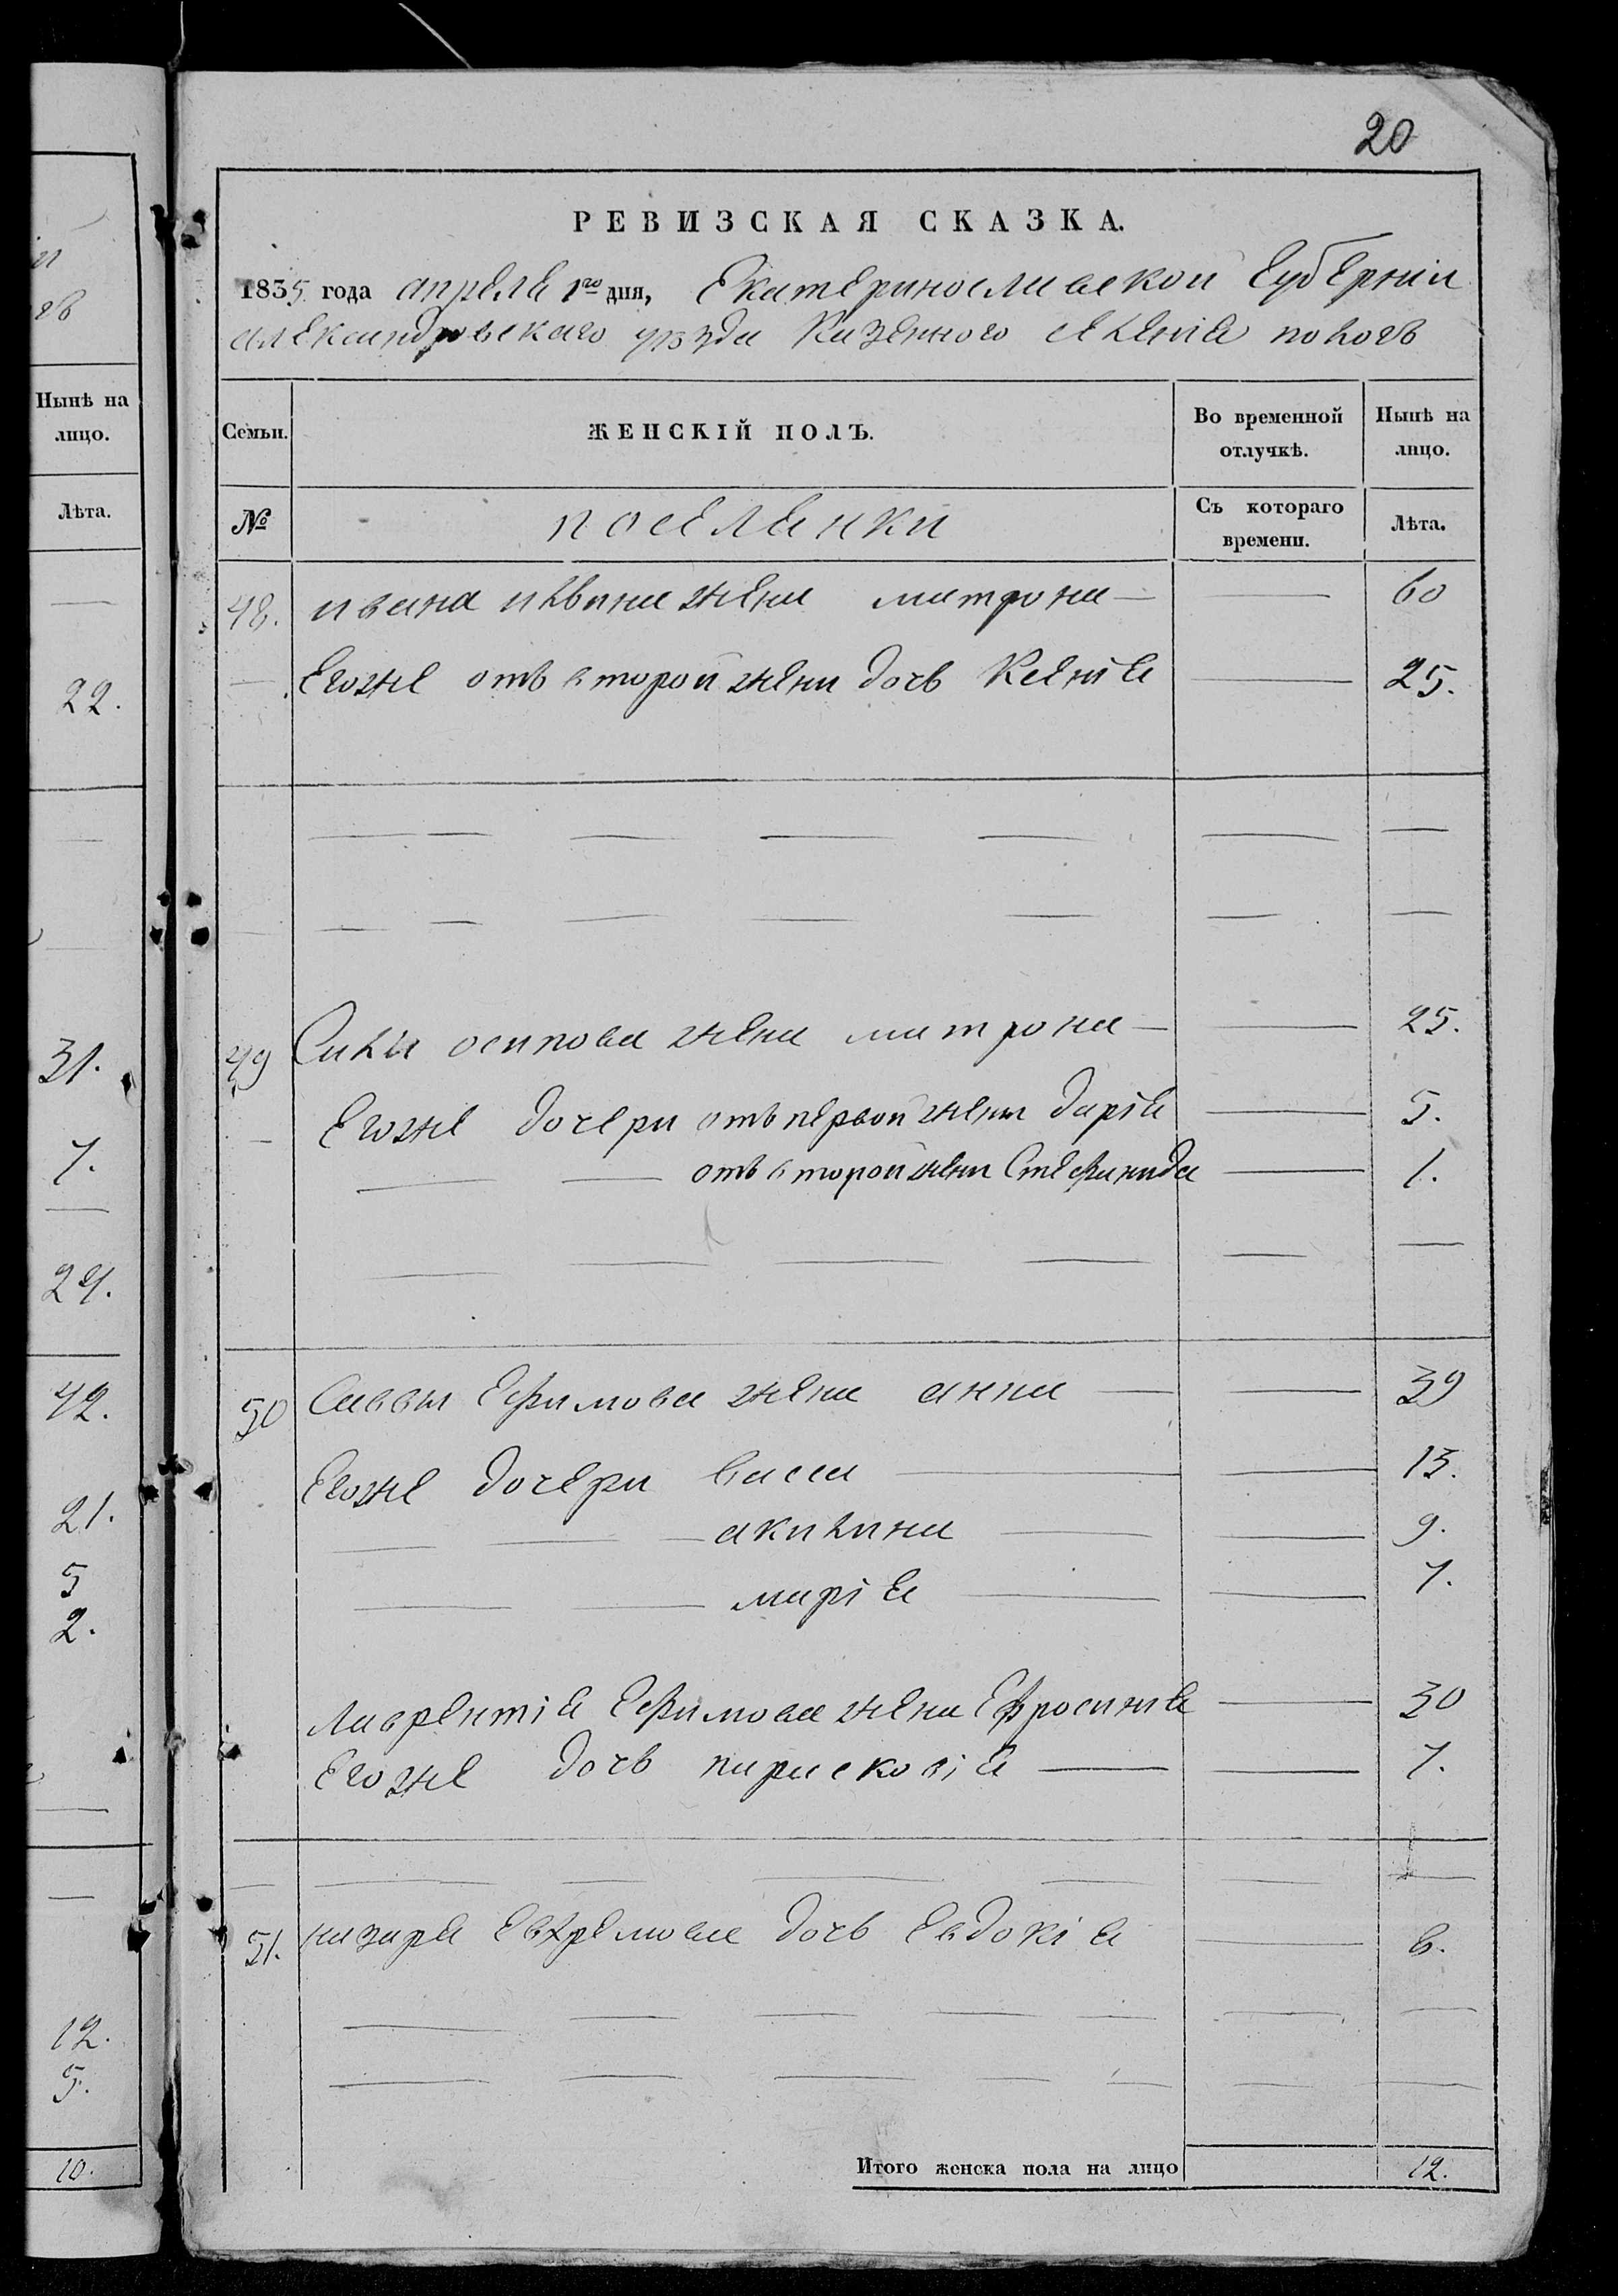 20
РЕВИЗСКАЯ СКАЗКА.
1835 года апреля 1го дня, Екатеринославской Губернии
александровского уѣзда Казенного селения
Нынѣ на лицо.
Лѣта.
Семьи. ЖЕНСКІЙ ПОЛЪ. Во временной отлучкѣ. Нынѣ на лицо.
№ поселянки Съ котораго времени. Лѣта.
48. ивана жена матрона — — 60
Егоже отъ второй жени дочь Ксенія — 25.
49 Силы осипова жена матрона — — 25.
Егоже дочери отъ первой жены дарія — 5.
— — отъ второй жени Стефанида — 1.
50 Саввы Ефимова жена анна — — 39
Егоже дочери васса — — 13.
— — — акилина — — 9.
— — марія — — 7.
Лаврентія Ефимова жена Ефросинія — 30
Егоже дочь парасковія — — 7.
51. назара Евхремова дочь Евдокія — 6.
Итого женска пола на лицо 12.
22.
31.
7.
24.
42.
21.
5
2.
12.
5.
10.